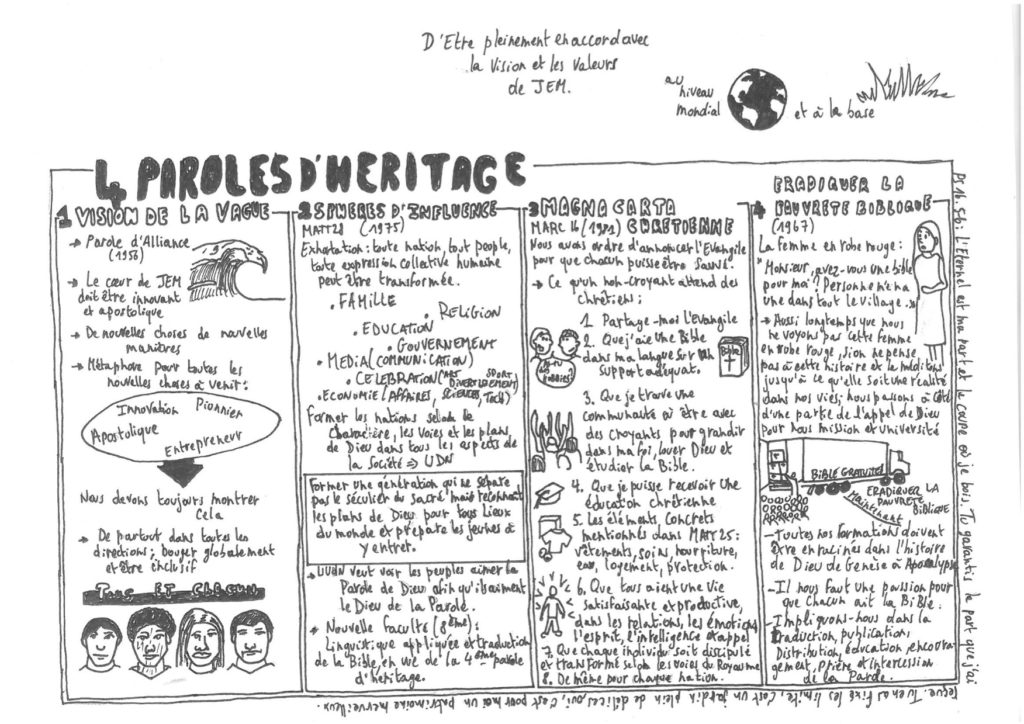 D'Etre pleinement en accord avec
la Vision et les Valeurs
de JEM.
au
niveau
mondial
et à la base
4 PAROLES D'HERITAGE
1 VISION DE LA VAGUE
→ Parole d'Alliance
(1956)
→ Le cœur de JEM
doit être innovant
et apostolique
→ De nouvelles choses de nouvelles
manières
→ Métaphore pour toutes les
nouvelles choses à venir:
Innovation Pionnier
Apostolique
Entrepreneur
Nous devons toujours montrer
Cela
→ De partout dans toutes les
directions; bouger globalement
et être inclusif
TOUS ET CHACUN
2 SPHERES D'INFLUENCE
MATT 28 (1975)
Exhortation: toute nation, tout peuple,
toute expression collective humaine
peut être transformée.
• FAMILLE
• RELIGION
• EDUCATION
• GOUVERNEMENT
• MEDIA (COMMUNICATION)
• CELEBRATION (ART SPORT
DIVERTISSEMENT)
• ECONOMIE (AFFAIRES, SCIENCES, TECH)
Former les nations selon le
Charactère, les voies et les plans,
de Dieu dans tous les aspects de
la Société ⇒ UDN
Former une génération qui ne sépare
pas le séculier du sacré mais reconnait
les plans de Dieu pour tous Lieux
du monde et prépare les jeunes à
y entrer.
→ UUDN veut voir les peuples aimer la
Parole de Dieu afin qu'ils aiment
le Dieu de la Parole.
→ Nouvelle faculté (8ème):
Linguistique appliquée et traduction
de la Bible, en vue de la 4ème parole
d'héritage.
3 MAGNA CARTA
MARC 16 (1981) CHRETIENNE
Nous avons ordre d'annoncer l'Evangile
pour que chacun puisse être sauvé.
→ Ce qu'un non-croyant attend des
chrétiens:
1. Partage-moi l'Evangile
2. Que j'aie une Bible
dans ma langue sur un
support adéquat.
Bible
3. Que je trouve une
communauté où être avec
des croyants pour grandir
dans ma foi, louer Dieu et
étudier la Bible.
4. Que je puisse recevoir une
éducation chrétienne
5. Les éléments concrets
mentionnés dans MATT 25:
vêtements, soins, nourriture,
eau, logement, protection.
6. Que tous aient une Vie
satisfaisante et productive,
dans les relations, les émotions
l'esprit, l'intelligence et appel
7. Que chaque individu soit discipulé
et transformé selon les voies du Royaume
8. De même pour chaque nation.
4 ERADIQUER LA
PAUVRETE BIBLIQUE
(1967)
La femme en robe rouge:
"Monsieur, avez-vous une bible
pour moi? Personne m'en a
une dans tout le village."
→ Aussi longtemps que nous
ne voyons pas cette femme
en robe rouge, si on ne pense
pas à cette histoire et la méditons
jusqu'à ce qu'elle soit une réalité
dans nos vies; nous passons à côté
d'une partie de l'appel de Dieu
pour nous mission et université
BIBLE GRATUITE
ERADIQUER LA
PAUVRETE
BIBLIQUE
Maintenant
- Toutes nos formations doivent
être enracinées dans l'histoire
de Dieu de Genèse à Apocalypse
- Il nous faut une passion pour
que chacun ait la Bible.
- Impliquons-nous dans la
traduction, publications
Distribution, éducation, encourag-
gement, prière et intercession
de la Parole.
Ps 16.5-6: l'Eternel est ma part et la coupe où je bois. Tu garantis la part que j'ai
reçue. Tu en as fixé les limites, c'est un jardin plein de délices, oui, c'est pour moi un patrimoine merveilleux.